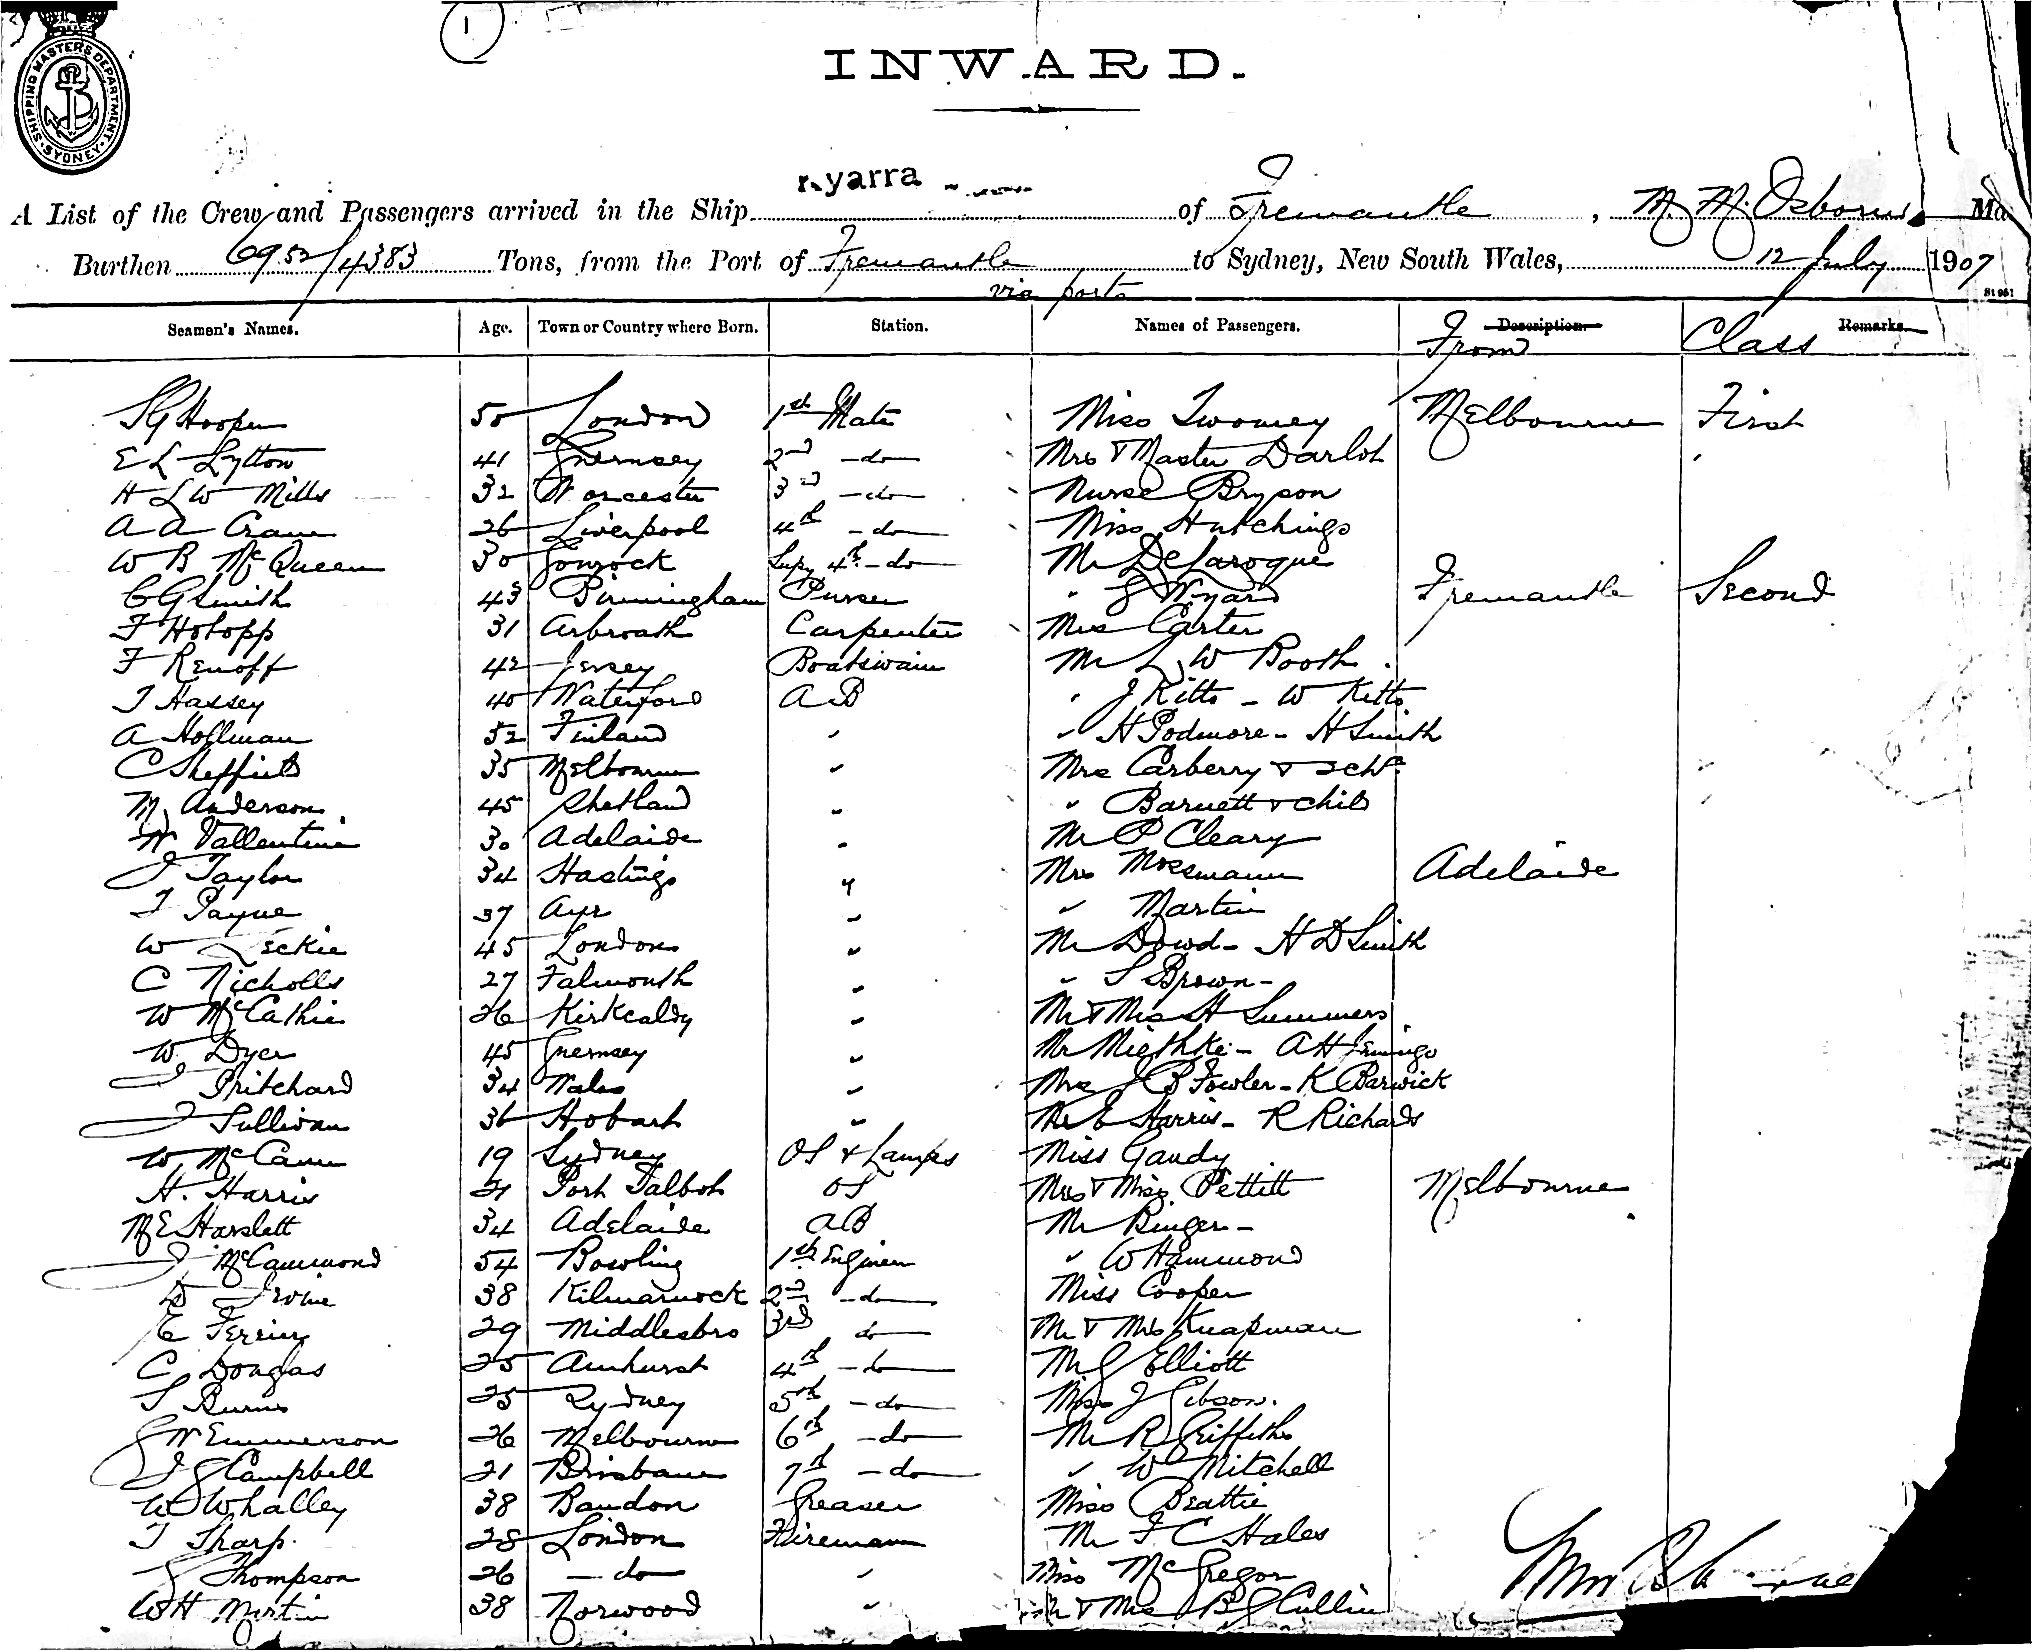 1
SHIPPING MASTERS DEPARTMENT. SYDNEY
INWARD.
yarra
A List of the Crew and Passengers arrived in the Ship of Fremantle, M. M. Osborne
Burthen 6952/4383 Tons, from the Port of Fremantle to Sydney, New South Wales, 12 July 1907
via ports
Seamen's Names. Age. Town or Country where Born. Station. Names of Passengers. Description. From Class Remarks.
S G Hooper 50 London 1st Mate Miss Twomey Melbourne First
E L Lytton 41 Guernsey 2nd -do- Mrs & Master Darlot
H L W Mills 32 Worcester 3rd -do- Nurse Bryson
A A Crane 26 Liverpool 4th -do- Miss Hutchings
W B McQueen 30 Gourock Supy 4th -do- Mr DeLaroque
C G Smith 43 Birmingham Purser " Wyard Fremantle Second
F Hotopp 31 Arbroath Carpenter Mrs Carter
F Renoff 42 Jersey Boatswain Mr L W Booth
T Hassey 40 Waterford AB " J Kitto - W Kitto
A Hollman 52 Finland " " H Podmore - H Smith
C Sheffield 35 Melbourne " Mrs Carberry &
M Anderson 45 Shetland " " Barnett & child
W Vallentine 30 Adelaide " Mr P Cleary
J Taylor 34 Hastings " Mrs Mossmann Adelaide
T Payne 37 Ayr " " Martin
W Leckie 45 London " Mr Dowd - H D Smith
C Nicholls 27 Falmouth " " S Brown -
W McCathie 26 Kirkcaldy " Mr & Mrs H Summers
W. Dyer 45 Guernsey " Mr Miethke - A H Jennings
J Pritchard 34 Wales " Mrs J B Fowler - K Barwick
J Sullivan 36 Hobart " Mr E Harris - R Richards
W McCann 19 Sydney OS & Lamps Miss Gandy
H. Harris 21 Port Talbot OS Mrs & Miss Pettitt Melbourne
M E Harslett 34 Adelaide AB Mr Binger -
J McCammond 54 Bowling 1st Engineer " W Hammond
D Irvine 38 Kilmarnock 2nd -do- Miss Cooper
E Ferrier 29 Middlesbro 3rd do Mr & Mrs Knapman
C Douglas 25 Amhurst 4th -do- Mr G Elliott
S Burns 25 Sydney 5th -do- Miss J Gibson.
G W Emmerson 26 Melbourne 6th -do- Mr R Griffiths
J G Campbell 21 Brisbane 7th -do- " W Mitchell
W Whalley 38 Bandon Greaser Miss Beattie
T Tharp. 28 London Fireman Mr F C Hales
G Thompson 26 -do- " Miss McGregor
W H Martin 38 Norwood " & Mrs B G Cullin